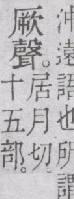 沖遠語也所謂
厥聲。居月切。
十五部。